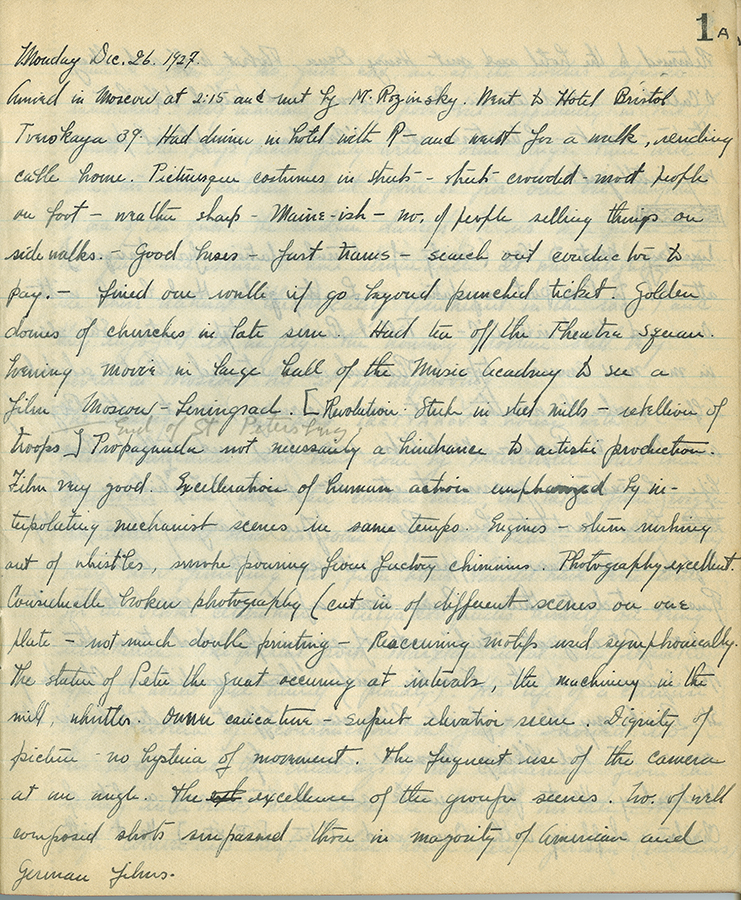 1A
Monday Dec. 26. 1927.
Arrived in Moscow at 2:15 and met by Mr. Rozinsky. Went to Hotel Bristol
Tverskaya 39. Had dinner in hotel with R— and went for a walk, sending
cable home. Picturesque costumes in streets - streets crowded - most people
on foot - weather sharp - Maine-ish - no. of people selling things on
sidewalks. - Good buses - fast trams - search out conductor to
pay. - fined one rouble if go beyond punched ticket. Golden
domes of churches in late sun. Had tea off the Theatre Square.
Evening movie in large hall of the Music Academy to see a
film Moscow-Leningrad. [Revolution: Strike in steel mills - rebellion of
End of St Petersburg
troops] Propaganda not necessarily a hindrance to artistic production.
Film very good. Excelleration of human action emphasized by in-
terpolating mechanist scenes in same tempo. Engines - steam rushing
out of whistles, smoke pouring from factory chimnies. Photography excellent.
Considerable broken photography (cut in of different scenes on one
plate - not much double printing - Reaccuring motifs used symphonically.
The statue of Peter the great occuring at intervals, the machinery in the
mill, whistles. caricature - superb elevation scene. Dignity of
picture - no hysteria of movement. The frequent use of the camera
at an angle. The excellence of the group scenes. No. of well
composed shots surpassed those in majority of American and
German films.